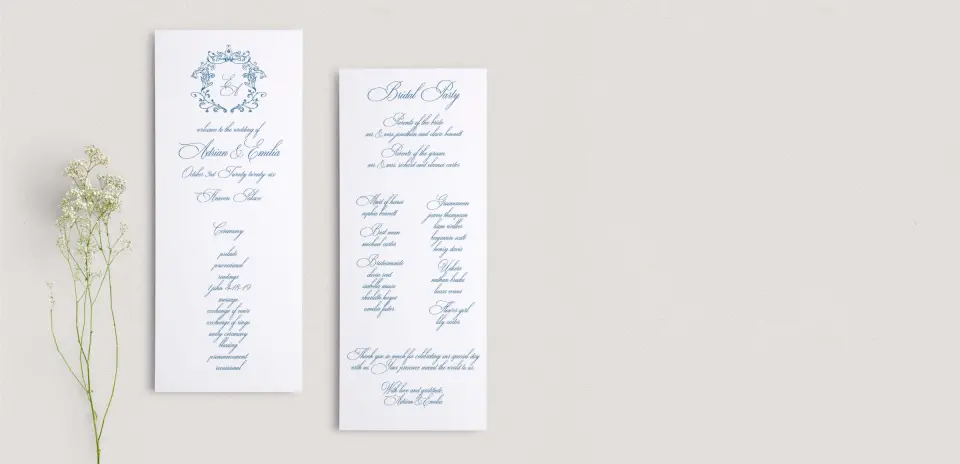 EA
welcome to the wedding of
Adrian & Emilia
October 3rd Twenty twenty six
The Haven Palace
Ceremony
prelude
processional
readings
1 john 4:18-19
message
exchange of vows
exchange of rings
unity ceremony
blessing
pronouncement
recessional
Bridal Party
Parents of the bride
mr. & mrs. jonathan and claire bennett
Parents of the groom
mr. & mrs. richard and eleanor carter
Maid of honor
sophia bennett
Best man
michael carter
Bridesmaids
olivia reed
isabella moore
charlotte hayes
amelia foster
Groomsmen
james thompson
liam walker
benjamin scott
henry davis
Ushers
nathan brooks
lucas evans
Flower girl
lily carter
Thank you so much for celebrating our special day
with us. Your presence meant the world to us.
With love and gratitude,
Adrian & Emilia